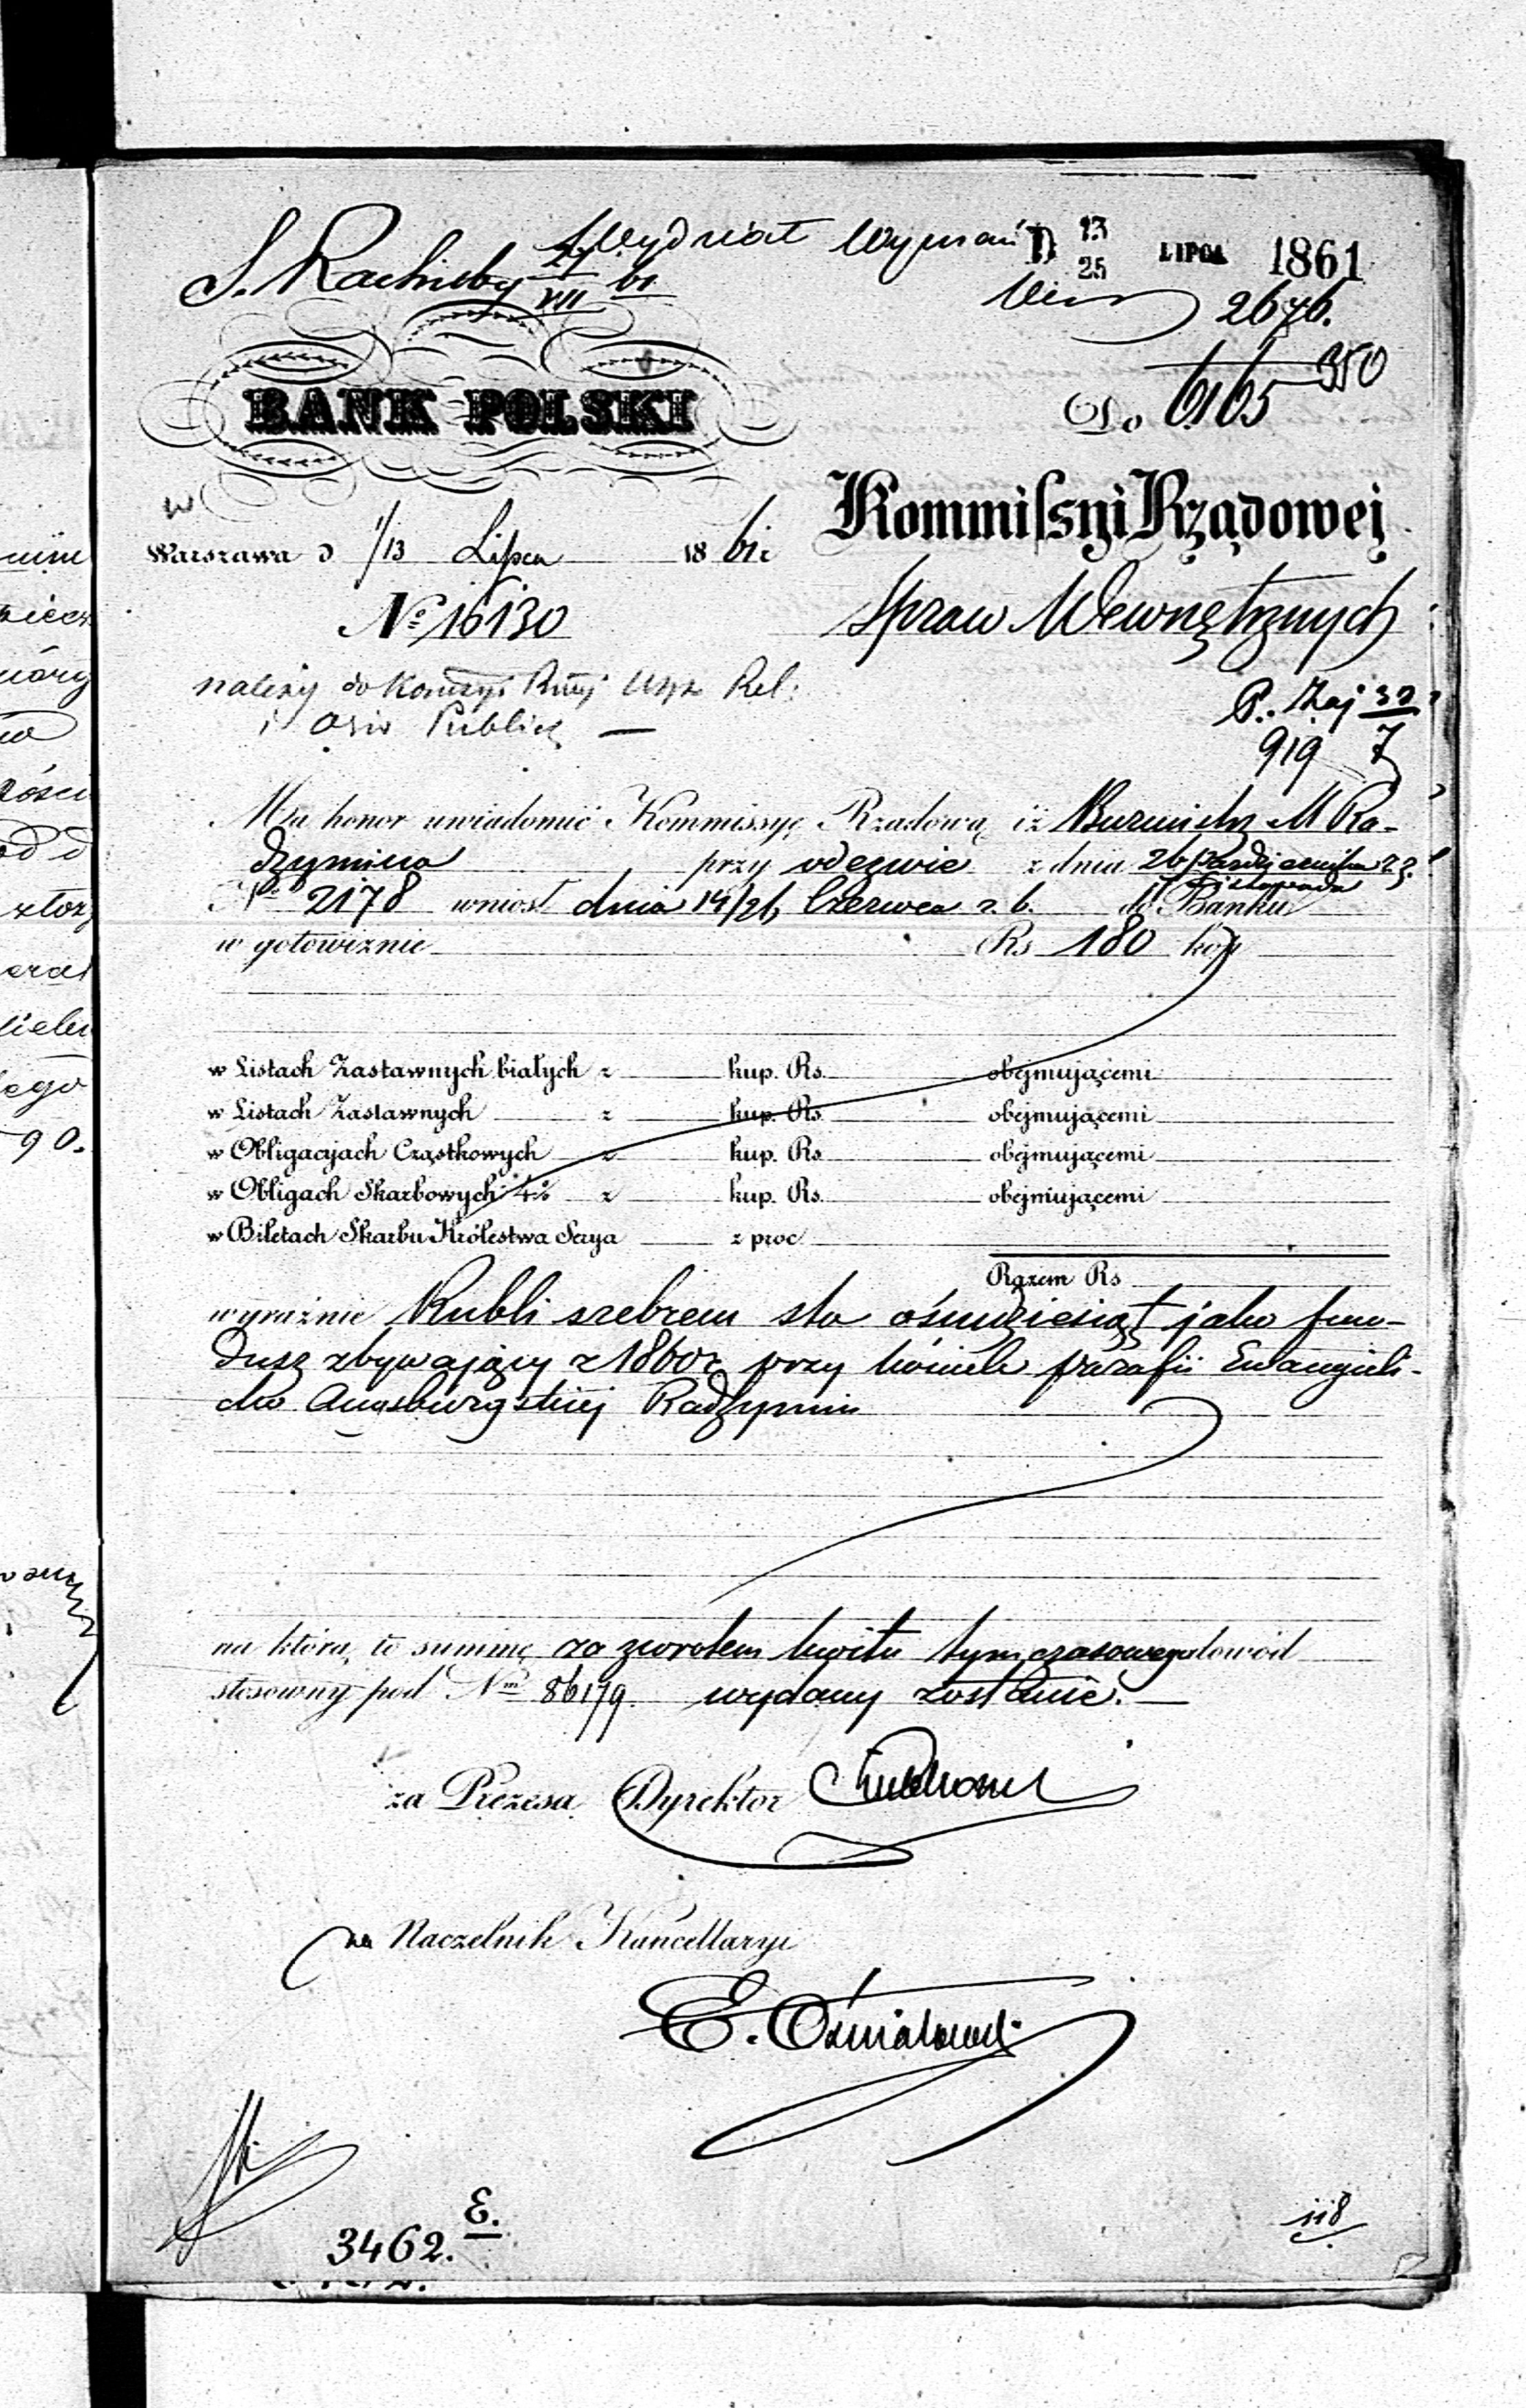 S. Rachuby 24/VII 61 Wydział Wyznań D 13/25 LIPCA 1861
2676.
350
BANK POLSKI
Do 6165
Kommissyi Rządowej
Warszawa d 1/13 Lipca 1861r
№ 16130
Spraw Wewnętrznych
należy do Kommyi Rząj Wyz Rel:
i Ośw Publicz —
P. Zaj 32
919 7
Ma honor uwiadomić Kommissyę Rządową iż Burmistrz M Ra-
dzymina przy odezwie z dnia 26 Października r. z.
Listopada
№ 2178 wniósł dnia 14/26 Czerwca r. b. do Banku
w gotowiznie Rs 180 kop
w Listach Zastawnych białych z kup. Rs. obejmującemi
w Listach Zastawnych z kup. Rs. obejmującemi
w Obligacyjach Cząstkowych z kup. Rs obejmującemi
w Obligach Skarbowych 4% z kup. Rs. obejmującemi
w Biletach Skarbu Królestwa Serya z proc
Razem Rs
wyraźnie Rubli srebrem sto ośmdziesiąt jako fun-
dusz zbywający z 1860r przy kościele parafii Ewangieli-
cko Augsburgskiej Radzymin
na którą to summę za zwrotem kwitu tymczasowego dowód
stosowny pod Nm 86179. wydany zostanie. —
za Prezesa Dyrektor
za Naczelnik Kancellaryi
E.
3462. E.
118